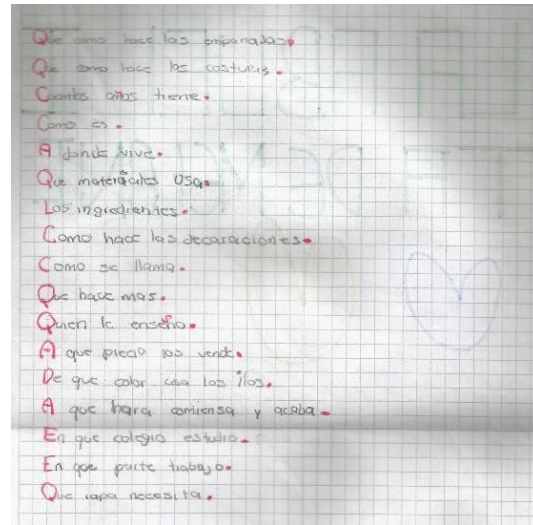 Que como hace las empanadas.
Que como hace las costuras.
Cuantos años tiene.
Como es.
A donde vive.
Que materiales usa.
Los ingredientes.
Como hace las decoraciones.
Como se llama.
Que hace mas.
Quien le enseño.
A que precio los vende.
De que color usa los ilos.
A que hora comiensa y acaba.
En que colegio estudio.
En que parte trabajo.
Que ropa necesita.